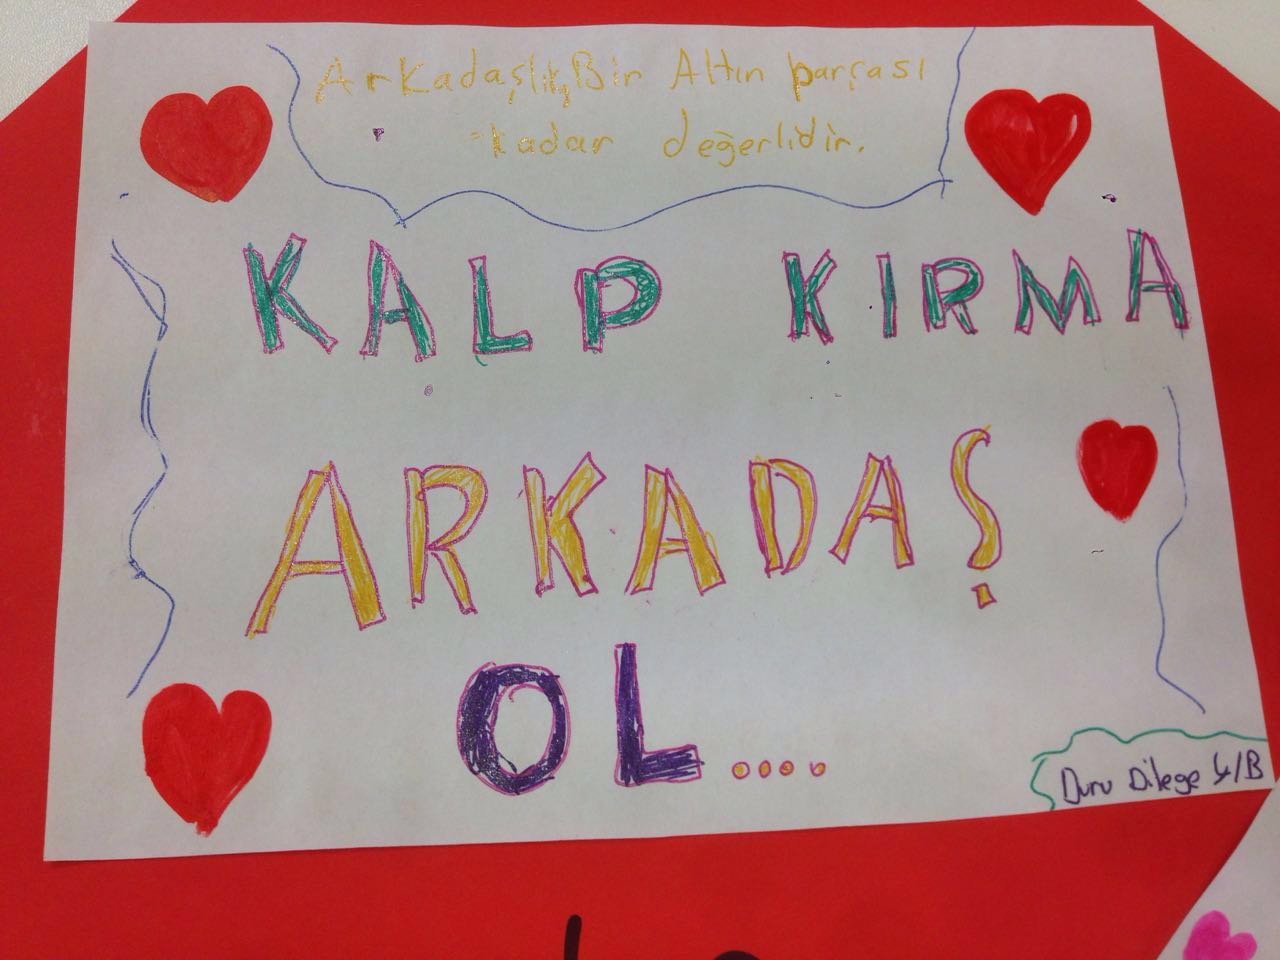 Arkadaşlık, Bir Altın parçası
kadar değerlidir.
KALP KIRMA
ARKADAŞ
OL....
Duru Dilege 4/B